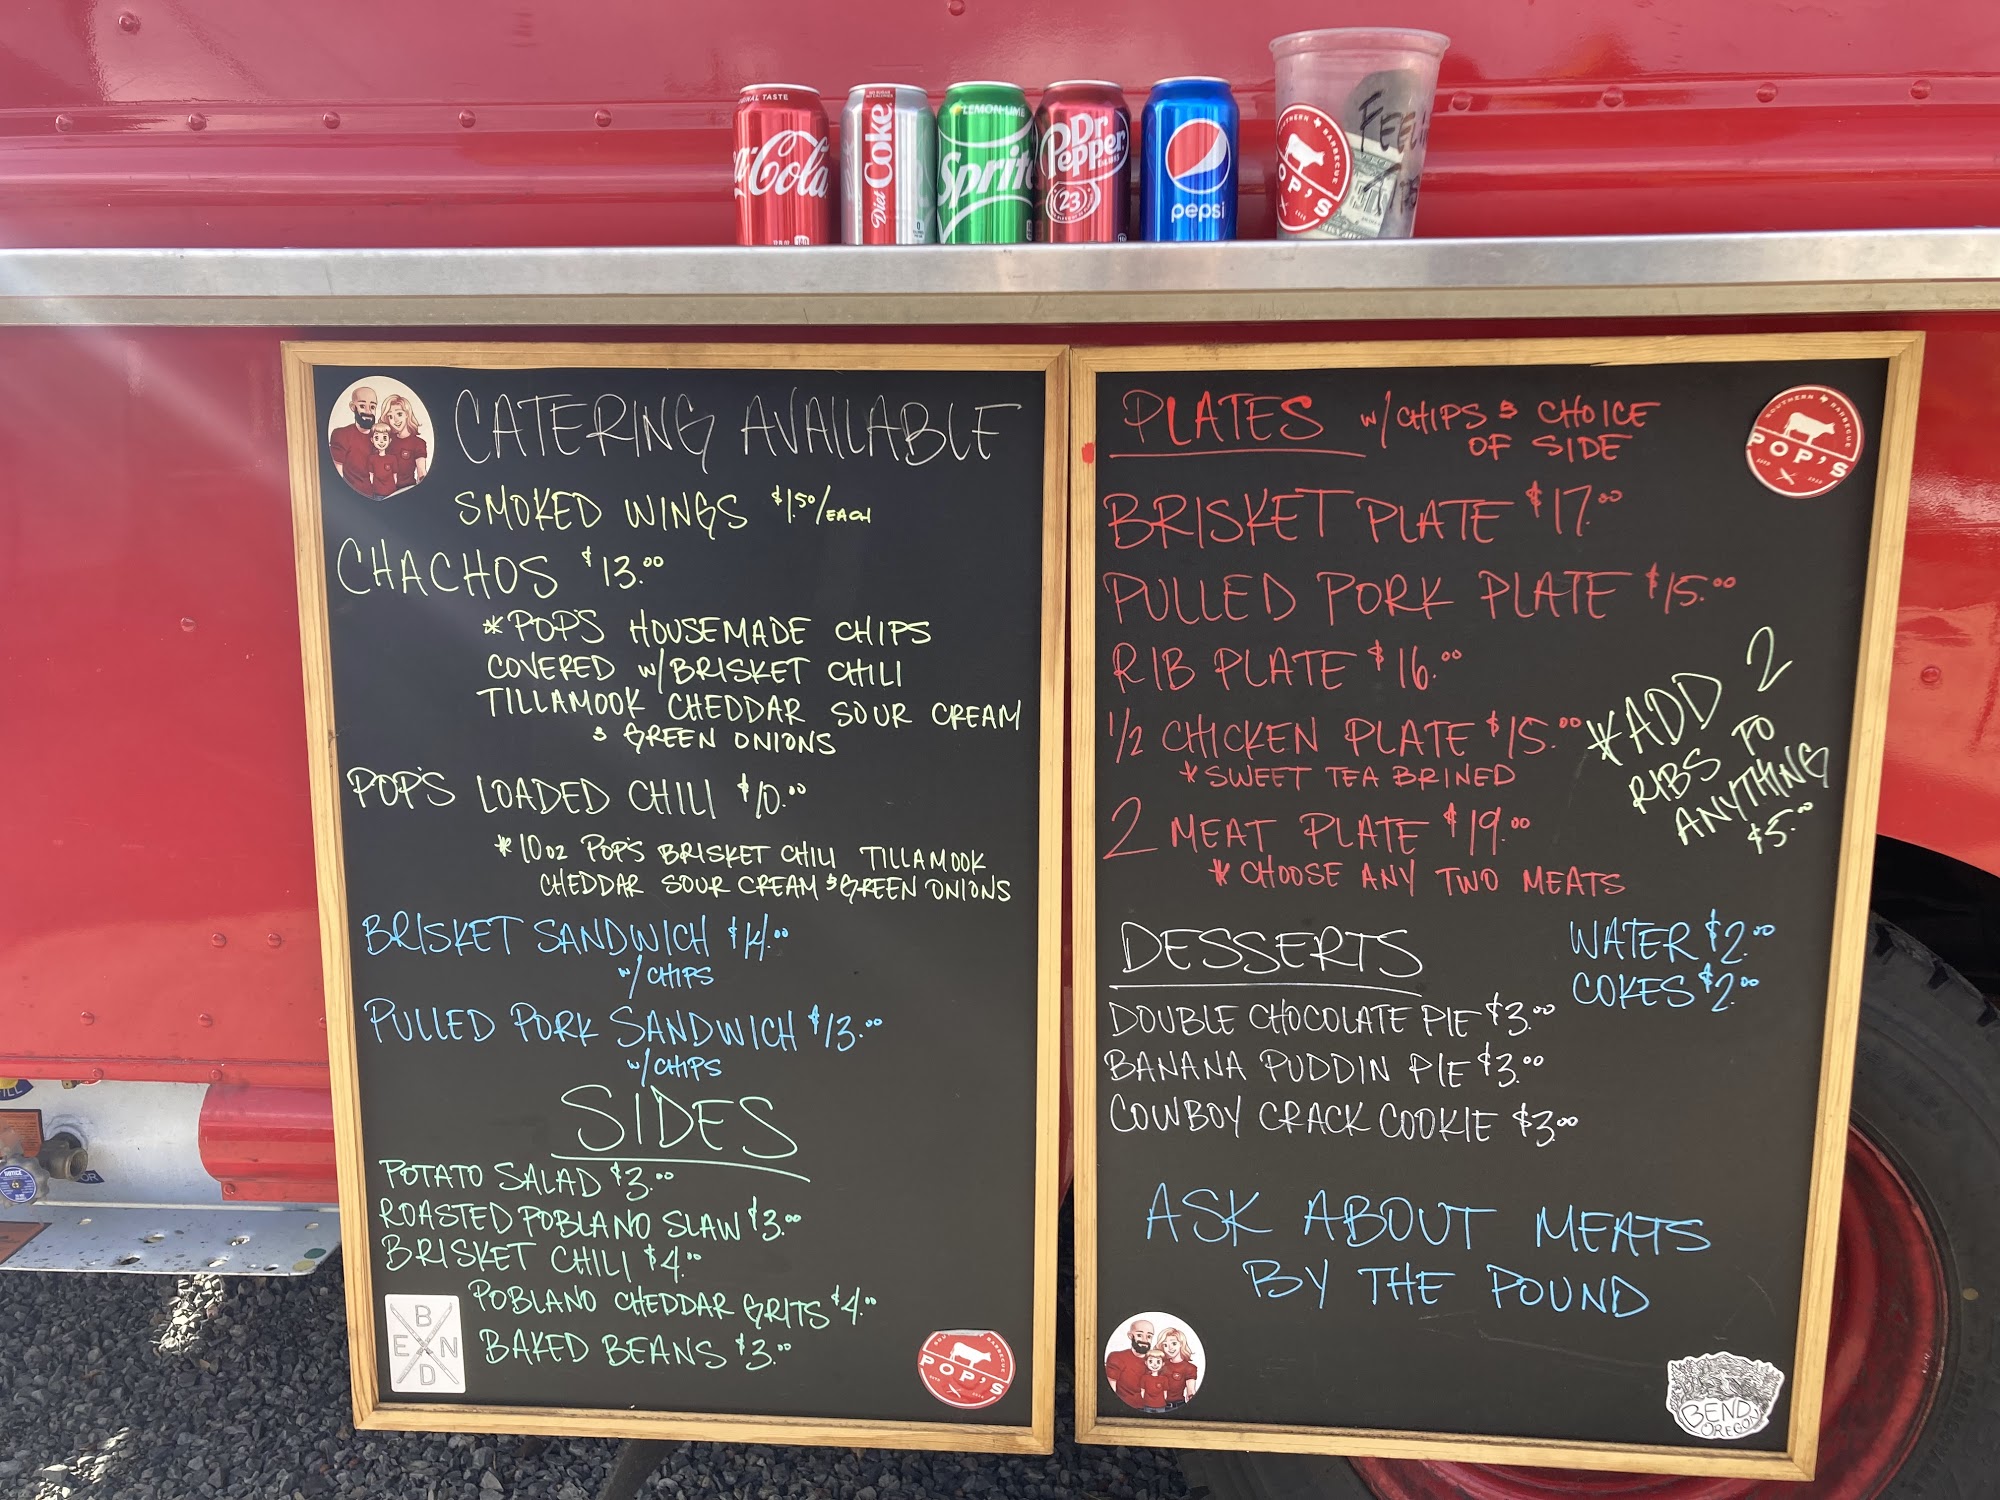 ORIGINAL TASTE
Coca-Cola
Diet Coke
LEMON-LIME
Sprite
Dr Pepper
23
pepsi
SOUTHERN BARBECUE
POP'S
CATERING AVAILABLE
SMOKED WINGS $1.50/EACH
CHACHOS $13.00
*POP'S HOUSEMADE CHIPS
COVERED W/BRISKET CHILI
TILLAMOOK CHEDDAR SOUR CREAM
& GREEN ONIONS
POP'S LOADED CHILI $10.00
*10oz POP'S BRISKET CHILI TILLAMOOK
CHEDDAR SOUR CREAM & GREEN ONIONS
BRISKET SANDWICH $14.00
W/CHIPS
PULLED PORK SANDWICH $13.00
W/CHIPS
SIDES
POTATO SALAD $3.00
ROASTED POBLANO SLAW $3.00
BRISKET CHILI $4.00
POBLANO CHEDDAR GRITS $4.00
BAKED BEANS $3.00
BEND
POP'S
PLATES W/CHIPS & CHOICE
OF SIDE
SOUTHERN BARBECUE
POP'S
BRISKET PLATE $17.00
PULLED PORK PLATE $15.00
RIB PLATE $16.00
1/2 CHICKEN PLATE $15.00
*SWEET TEA BRINED
2 MEAT PLATE $19.00
*CHOOSE ANY TWO MEATS
*ADD 2
RIBS TO
ANYTHING
$5.00
DESSERTS
DOUBLE CHOCOLATE PIE $3.00
BANANA PUDDIN PIE $3.00
COWBOY CRACK COOKIE $3.00
WATER $2.00
COKES $2.00
ASK ABOUT MEATS
BY THE POUND
BEND
OREGON